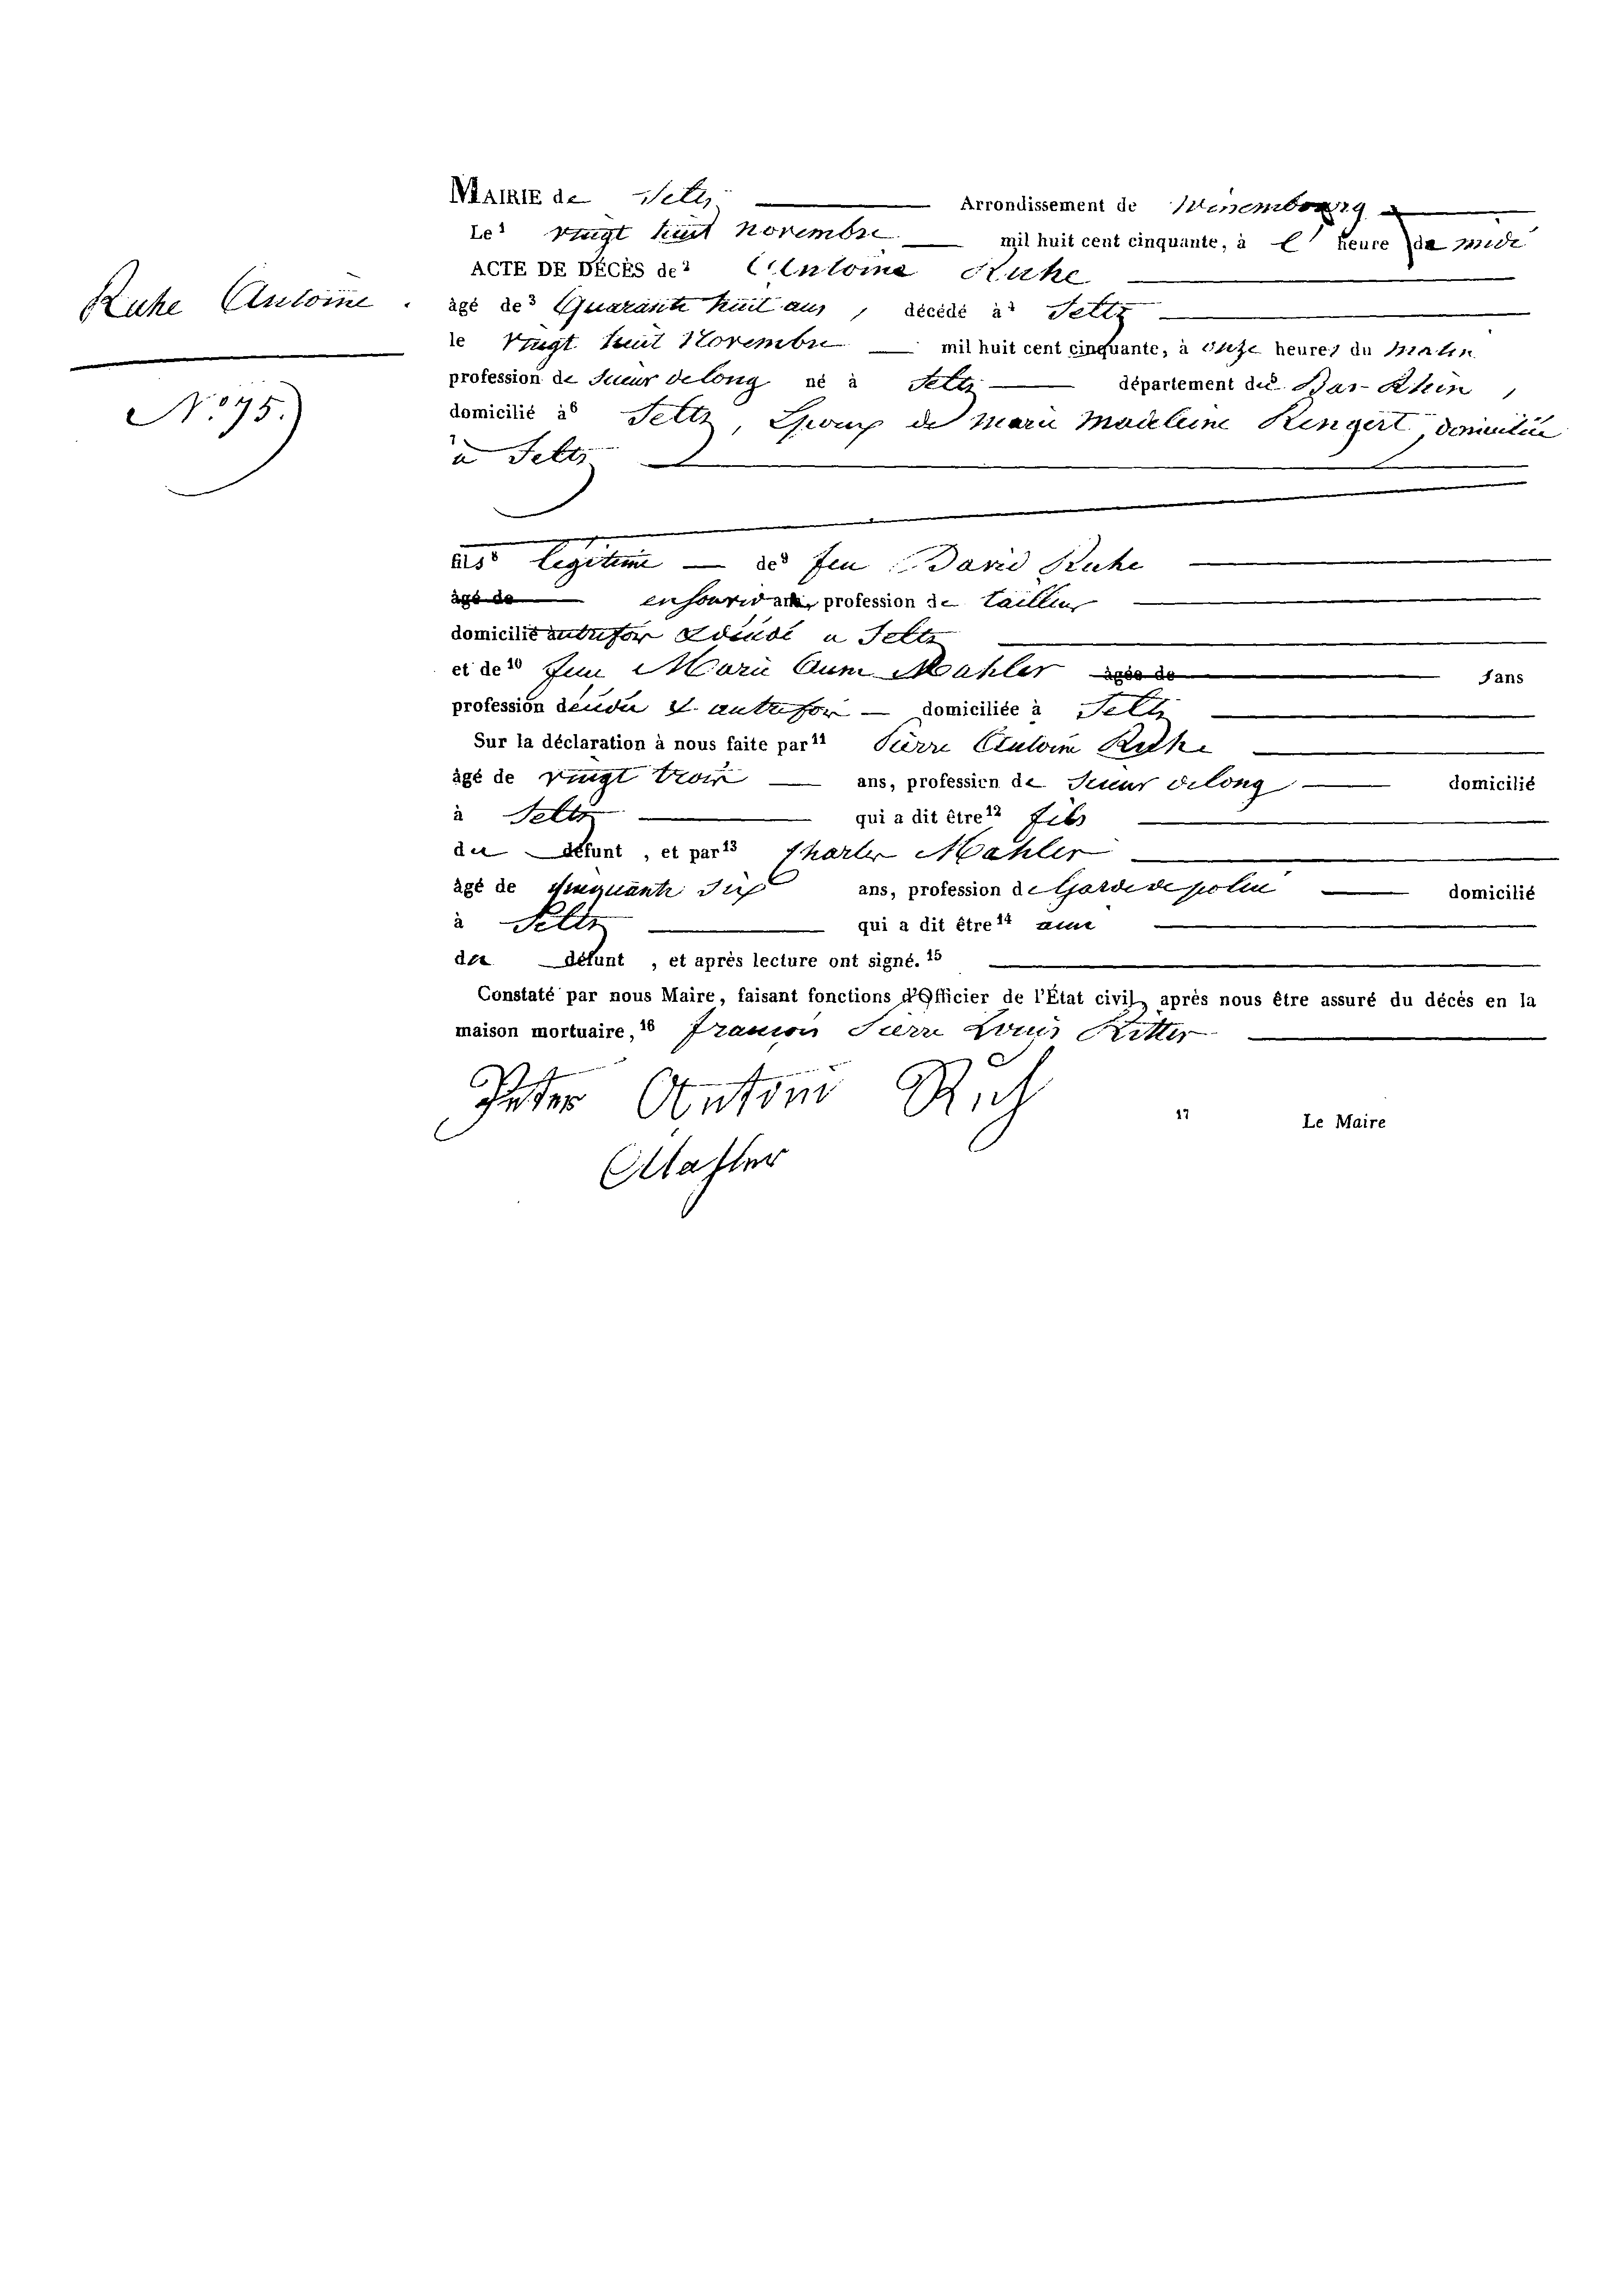 MAIRIE de Seltz Arrondissement de Wissembourg
Le¹ vingt huit novembre mil huit cent cinquante, à l' heure de midi
ACTE DE DÉCÈS de² Antoine Ruhe
Ruhe Antoine.
âgé de³ Quarante huit ans, décédé à⁴ Seltz
le vingt huit Novembre mil huit cent cinquante, à onze heures du matin
N° 75.
profession de Scieur de long né à Seltz département du Bas-Rhin,
domicilié à⁶ Seltz, Epoux de Marie Madeleine Ringert, domiciliée
⁷ à Seltz
fils⁸ legitime de⁹ feu David Ruhe
âgé de en son vivant ans, profession de tailleur
domicilié autrefois à Seltz
et de¹⁰ feue Marie Anne Mahler âgée de ans
profession de autrefois domiciliée à Seltz
Sur la déclaration à nous faite par¹¹ Pierre Antoine Ruhe
âgé de vingt trois ans, profession de Scieur de long domicilié
à Seltz qui a dit être¹² fils
du défunt, et par¹³ Charles Mahler
âgé de cinquante six ans, profession de Garde de police domicilié
à Seltz qui a dit être¹⁴ ami
du défunt, et après lecture ont signé.¹⁵
Constaté par nous Maire, faisant fonctions d'Officier de l'État civil, après nous être assuré du décès en la
maison mortuaire,¹⁶ François Pierre Louis Ritter
Peter Antoni Ruh
¹⁷ Le Maire
Mahler